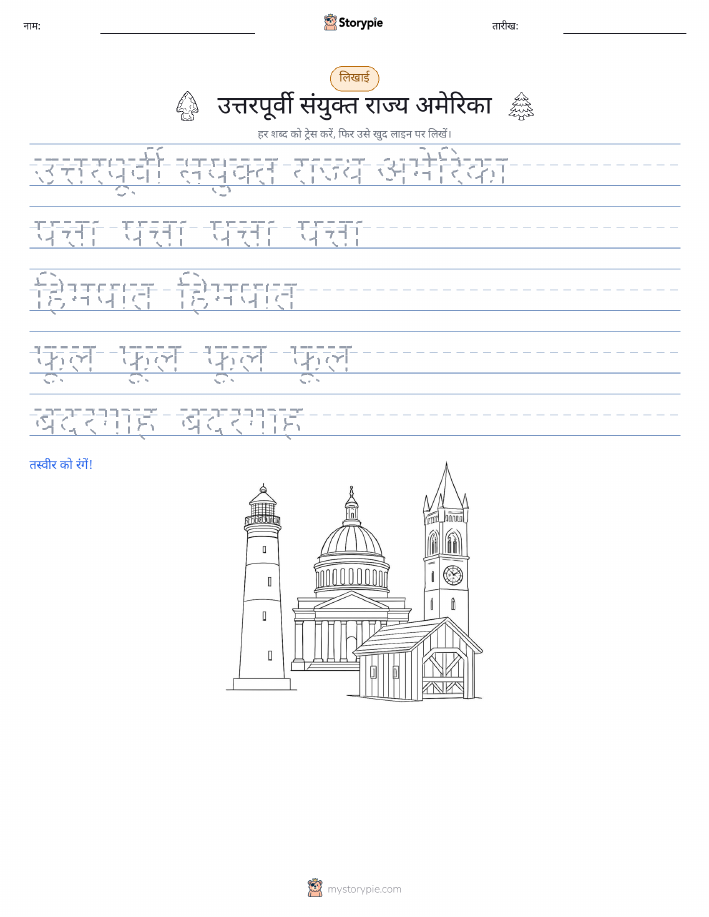 नाम:
Storypie
तारीख:
लिखाई
उत्तरपूर्वी संयुक्त राज्य अमेरिका
हर शब्द को ट्रेस करें, फिर उसे खुद लाइन पर लिखें।
उत्तरपूर्वी सयुक्त राज्य अमेरिका
पत्ता पत्ता पत्ता पत्ता
हिमपात हिमपात
फूल फूल फूल फूल
बदरगाह बदरगाह
तस्वीर को रंगें!
mystorypie.com